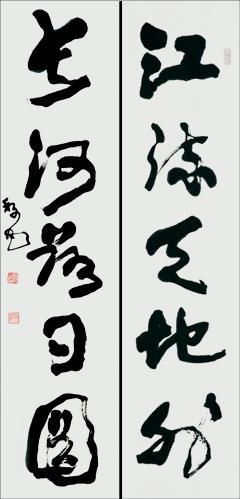 江流天地外
长河落日圆